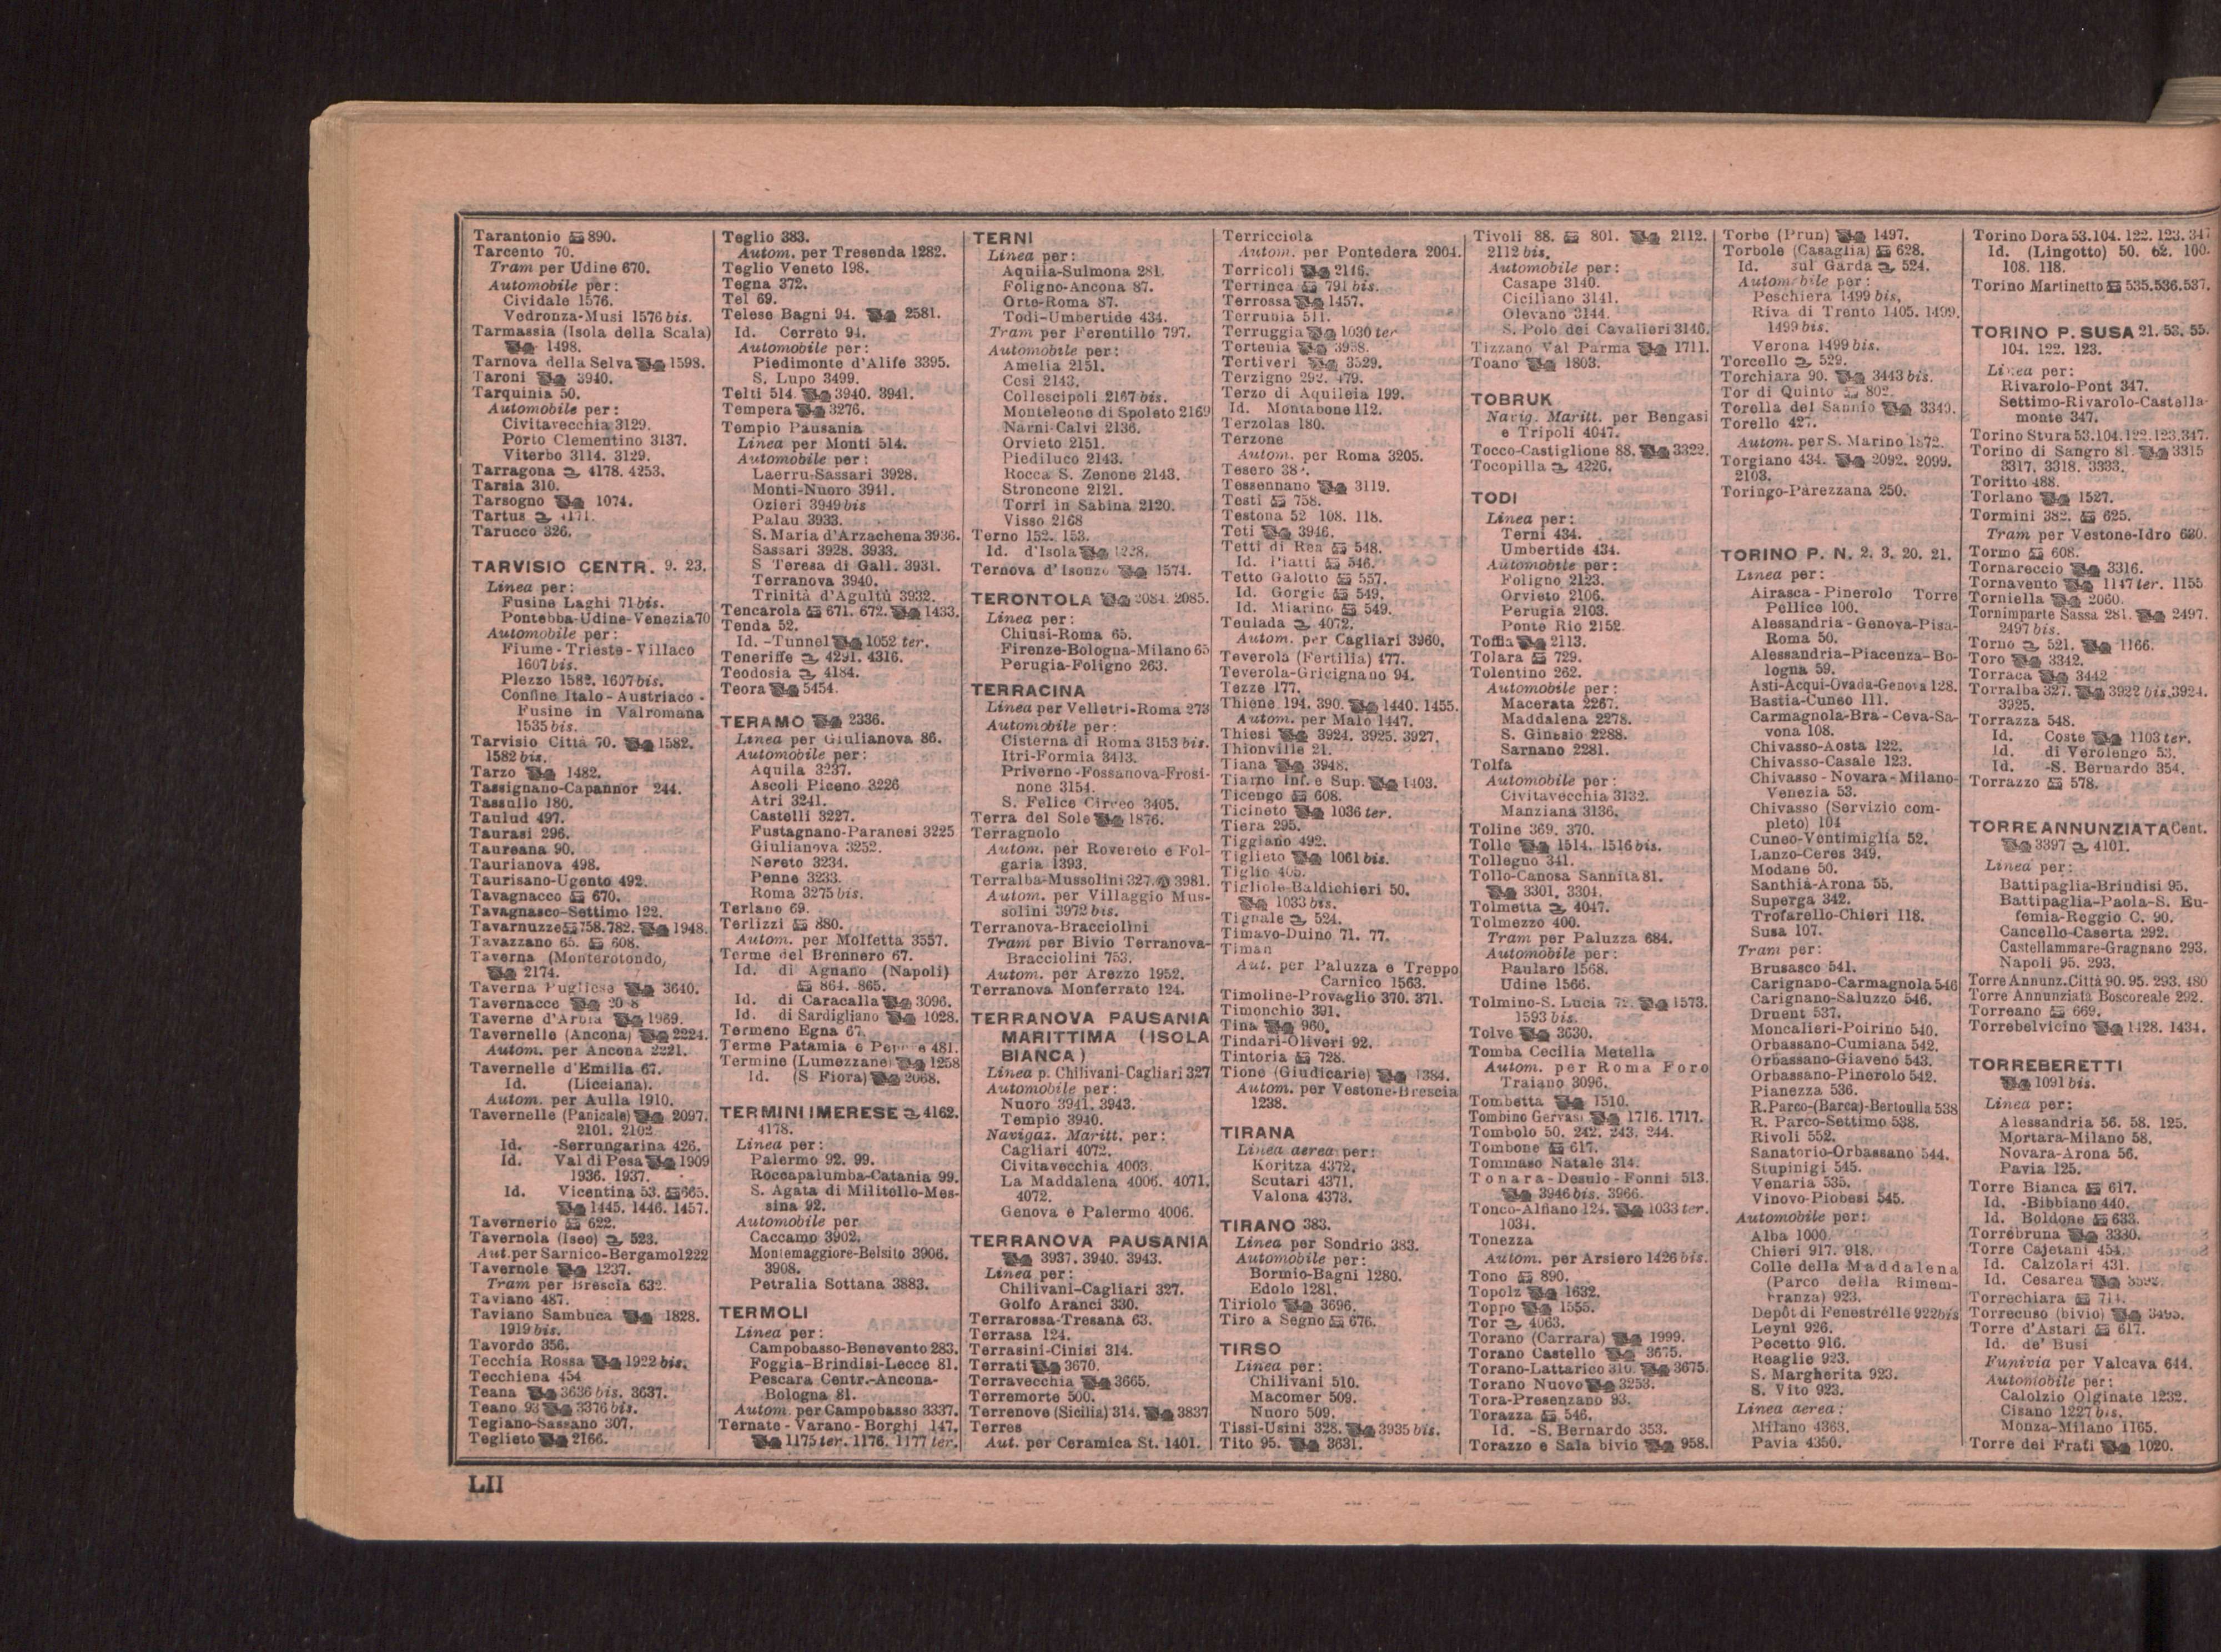 Tarantonio 890.
Tarcento 70.
Tram per Udine 670.
Automobile per:
Cividale 1576.
Vedronza-Musi 1576 bis.
Tarmassia (Isola della Scala)
1498.
Tarnova della Selva 1598.
Taroni 3940.
Tarquinia 50.
Automobile per:
Civitavecchia 3129.
Porto Clementino 3137.
Viterbo 3114. 3129.
Tarragona 4178. 4253.
Tarsia 310.
Tarsogno 1074.
Tartus 4171.
Tarucco 326.
TARVISIO CENTR. 9. 23.
Linea per:
Fusine Laghi 71 bis.
Pontebba-Udine-Venezia 70
Automobile per:
Fiume-Trieste-Villaco
1607 bis.
Plezzo 1582. 1607 bis.
Confine Italo-Austriaco-
Fusine in Valromana
1535 bis.
Tarvisio Città 70. 1582.
1582 bis.
Tarzo 1482.
Tassignano-Capannor 244.
Tassullo 180.
Taulud 497.
Taurasi 296.
Taureana 90.
Taurianova 498.
Taurisano-Ugento 492.
Tavagnacco 670.
Tavagnasco-Settimo 122.
Tavarnuzze 758.782. 1948.
Tavazzano 65. 608.
Taverna (Monterotondo,
2174.
Taverna Pugliese 3640.
Tavernacce
Taverne d'Arbia 1969.
Tavernelle (Ancona) 2224.
Autom. per Ancona 2221.
Tavernelle d'Emilia 67.
Id. (Licciana).
Autom. per Aulla 1910.
Tavernelle (Panicale) 2097.
2101. 2102
Id. -Serrungarina 426.
Id. Val di Pesa 1909
1936. 1937.
Id. Vicentina 53. 665.
1445. 1446. 1457.
Tavernerio 622.
Tavernola (Iseo) 523.
Aut. per Sarnico-Bergamo 1222
Tavernole 1237.
Tram per Brescia 632.
Taviano 487.
Taviano Sambuca 1828.
1919 bis.
Tavordo 356.
Tecchia Rossa 1922 bis.
Tecchiena 454
Teana 3636 bis. 3637.
Teano 93 3376 bis.
Tegiano-Sassano 307.
Teglieto 2166.
Teglio 383.
Autom. per Tresenda 1282.
Teglio Veneto 198.
Tegna 372.
Tel 69.
Telese Bagni 94. 2581.
Id. Cerreto 94.
Automobile per:
Piedimonte d'Alife 3395.
S. Lupo 3499.
Telti 514. 3940. 3941.
Tempera 3276.
Tempio Pausania
Linea per Monti 514.
Automobile per:
Laerru-Sassari 3928.
Monti-Nuoro 3941.
Ozieri 3949 bis
Palau 3933.
S. Maria d'Arzachena 3936.
Sassari 3928. 3933.
S Teresa di Gall. 3931.
Terranova 3940.
Trinità d'Agultù 3932.
Tencarola 671. 672. 1433.
Tenda 52.
Id. -Tunnel 1052 ter.
Teneriffe 4291. 4316.
Teodosia 4184.
Teora 5454.
TERAMO 2336.
Linea per Giulianova 86.
Automobile per:
Aquila 3237.
Ascoli Piceno 3226
Atri 3241.
Castelli 3227.
Fustagnano-Paranesi 3225
Giulianova 3252.
Nereto 3234.
Penne 3233.
Roma 3275 bis.
Terlano 69.
Terlizzi 880.
Autom. per Molfetta 3557.
Terme del Brennero 67.
Id. di Agnano (Napoli)
864. 865.
Id. di Caracalla 3096.
Id. di Sardigliano 1028.
Termeno Egna 67.
Terme Patamia e 481.
Termine (Lumezzane) 1258
Id. (S Fiora) 2068.
TERMINI IMERESE 4162.
4178.
Linea per:
Palermo 92. 99.
Roccapalumba-Catania 99.
S. Agata di Militello-Mes-
sina 92.
Automobile per
Caccamo 3902.
Montemaggiore-Belsito 3906.
3908.
Petralia Sottana 3883.
TERMOLI
Linea per:
Campobasso-Benevento 283.
Foggia-Brindisi-Lecce 81.
Pescara Centr.-Ancona-
Bologna 81.
Autom. per Campobasso 3337.
Ternate-Varano-Borghi 147.
1175 ter. 1176. 1177 ter.
TERNI
Linea per:
Aquila-Sulmona 281.
Foligno-Ancona 87.
Orte-Roma 87.
Todi-Umbertide 434.
Tram per Ferentillo 797.
Automobile per:
Amelia 2151.
Cesi 2143.
Collescipoli 2167 bis.
Monteleone di Spoleto 2169
Narni-Calvi 2136.
Orvieto 2151.
Piediluco 2143.
Rocca S. Zenone 2143.
Stroncone 2121.
Torri in Sabina 2120.
Visso 2168
Terno 152. 153.
Id. d'Isola 1228.
Ternova d'Isonzo 1574.
TERONTOLA 2084. 2085.
Linea per:
Chiusi-Roma 65.
Firenze-Bologna-Milano 65
Perugia-Foligno 263.
TERRACINA
Linea per Velletri-Roma 273
Automobile per:
Cisterna di Roma 3153 bis.
Itri-Formia 3413.
Priverno-Fossanova-Frosi-
none 3154.
S. Felice Circeo 3405.
Terra del Sole 1876.
Terragnolo
Autom. per Rovereto e Fol-
garia 1393.
Terralba-Mussolini 327. 3981.
Autom. per Villaggio Mus-
solini 3972 bis.
Terranova-Bracciolini
Tram per Bivio Terranova-
Bracciolini 753.
Autom. per Arezzo 1952.
Terranova Monferrato 124.
TERRANOVA PAUSANIA
MARITTIMA (ISOLA
BIANCA)
Linea p. Chilivani-Cagliari 327
Automobile per:
Nuoro 3941. 3943.
Tempio 3940.
Navigaz. Maritt. per:
Cagliari 4072.
Civitavecchia 4003.
La Maddalena 4006. 4071.
4072.
Genova e Palermo 4006.
TERRANOVA PAUSANIA
3937. 3940. 3943.
Linea per:
Chilivani-Cagliari 327.
Golfo Aranci 330.
Terrarossa-Tresana 63.
Terrasa 124.
Terrasini-Cinisi 314.
Terrati 3670.
Terravecchia 3665.
Terremorte 500.
Terrenove (Sicilia) 314. 3837
Terres
Aut. per Ceramica St. 1401.
Terricciola
Autom. per Pontedera 2004.
Terricoli 2116.
Terrinca 791 bis.
Terrossa 1457.
Terrubia 511.
Terruggia 1030 ter
Tertenia 3958.
Tertiveri 3529.
Terzigno 292. 479.
Terzo di Aquileia 199.
Id. Montabone 112.
Terzolas 180.
Terzone
Autom. per Roma 3205.
Tesero
Tessennano 3119.
Testi 758.
Testona 52 108. 118.
Teti 3946.
Tetti di Rea 548.
Id. Piatti 546.
Tetto Galotto 557.
Id. Gorgie 549.
Id. Miarino 549.
Teulada 4072.
Autom. per Cagliari 3960.
Teverola (Fertilia) 477.
Teverola-Gricignano 94.
Tezze 177.
Thiene 194. 390. 1440. 1455.
Autom. per Malo 1447.
Thiesi 3924. 3925. 3927.
Thionville 21.
Tiana 3948.
Tiarno Inf. e Sup. 1403.
Ticengo 608.
Ticineto 1036 ter.
Tiera 295.
Tiggiano 492.
Tiglieto 1061 bis.
Tiglio 405.
Tigliole-Baldichieri 50.
1033 bis.
Tignale 524.
Timavo-Duino 71. 77.
Timau
Aut. per Paluzza e Treppo
Carnico 1563.
Timoline-Provaglio 370. 371.
Timonchio 391.
Tina 960.
Tindari-Oliveri 92.
Tintoria 728.
Tione (Giudicarie) 1384.
Autom. per Vestone-Brescia
1238.
TIRANA
Linea aerea per:
Koritza 4372.
Scutari 4371.
Valona 4373.
TIRANO 383.
Linea per Sondrio 383.
Automobile per:
Bormio-Bagni 1280.
Edolo 1281.
Tiriolo 3696.
Tiro a Segno 676.
TIRSO
Linea per:
Chilivani 510.
Macomer 509.
Nuoro 509.
Tissi-Usini 328. 3935 bis.
Tito 95. 3631.
Tivoli 88. 801. 2112.
2112 bis.
Automobile per:
Casape 3140.
Ciciliano 3141.
Olevano 3144.
S. Polo dei Cavalieri 3146.
Tizzano Val Parma 1711.
Toano 1803.
TOBRUK
Navig. Maritt. per Bengasi
e Tripoli 4047.
Tocco-Castiglione 88. 3322.
Tocopilla 4226.
TODI
Linea per:
Terni 434.
Umbertide 434.
Automobile per:
Foligno 2123.
Orvieto 2106.
Perugia 2103.
Ponte Rio 2152
Toffia 2113.
Tolara 729.
Tolentino 262.
Automobile per:
Macerata 2267.
Maddalena 2278.
S. Ginesio 2288.
Sarnano 2281.
Tolfa
Automobile per:
Civitavecchia 3132.
Manziana 3136.
Toline 369. 370.
Tolle 1514. 1516 bis.
Tollegno 341.
Tollo-Canosa Sannita 81.
3301. 3304.
Tolmetta 4047.
Tolmezzo 400.
Tram per Paluzza 684.
Automobile per:
Paularo 1568.
Udine 1566.
Tolmino-S. Lucia 1573.
1593 bis.
Tolve 3630.
Tomba Cecilia Metella
Autom. per Roma Foro
Traiano 3096.
Tombetta 1510.
Tombino Gervasi 1716. 1717.
Tombolo 50. 242. 243. 244.
Tombone 617.
Tommaso Natale 314.
Tonara-Desulo-Fonni 513.
3946 bis. 3966.
Tonco-Alfiano 124. 1033 ter.
1034.
Tonezza
Autom. per Arsiero 1426 bis.
Tono 890.
Topolz 1632.
Toppo 1555.
Tor 4063.
Torano (Carrara) 1999.
Torano Castello 3675.
Torano-Lattarico 310. 3675.
Torano Nuovo 3253.
Tora-Presenzano 93.
Torazza 546.
Id. -S. Bernardo 353.
Torazzo e Sala bivio 958.
Torbe (Prun) 1497.
Torbole (Casaglia) 628.
Id. sul Garda 524.
Automobile per:
Peschiera 1499 bis.
Riva di Trento 1405. 1499.
1499 bis.
Verona 1499 bis.
Torcello 529.
Torchiara 90. 3443 bis.
Tor di Quinto 802.
Torella del Sannio 3340.
Torello 427.
Autom. per S. Marino 1872.
Torgiano 434. 2092. 2099.
2103.
Toringo-Parezzana 250.
TORINO P. N. 2. 3. 20. 21.
Linea per:
Airasca-Pinerolo Torre
Pellice 100.
Alessandria-Genova-Pisa-
Roma 50.
Alessandria-Piacenza-Bo-
logna 59.
Asti-Acqui-Ovada-Genova 128.
Bastia-Cuneo 111.
Carmagnola-Bra-Ceva-Sa-
vona 108.
Chivasso-Aosta 122.
Chivasso-Casale 123.
Chivasso-Novara-Milano-
Venezia 53.
Chivasso (Servizio com-
pleto) 104
Cuneo-Ventimiglia 52.
Lanzo-Ceres 349.
Modane 50.
Santhià-Arona 55.
Superga 342.
Trofarello-Chieri 118.
Susa 107.
Tram per:
Brusasco 541.
Carignano-Carmagnola 546
Carignano-Saluzzo 546.
Druent 537.
Moncalieri-Poirino 540.
Orbassano-Cumiana 542.
Orbassano-Giaveno 543.
Orbassano-Pinerolo 542.
Pianezza 536.
R. Parco-(Barca)-Bertoulla 538
R. Parco-Settimo 538.
Rivoli 552.
Sanatorio-Orbassano 544.
Stupinigi 545.
Venaria 535.
Vinovo-Piobesi 545.
Automobile per:
Alba 1000.
Chieri 917. 918.
Colle della Maddalena
(Parco della Rimem-
branza) 923.
Depôt di Fenestrelle 922 bis
Leyni 926.
Pecetto 916.
Reaglie 923.
S. Margherita 923.
S. Vito 923.
Linea aerea:
Milano 4363.
Pavia 4350.
Torino Dora 53. 104. 122. 123. 347
Id. (Lingotto) 50. 62. 100.
108. 118.
Torino Martinetto 535.536.537.
TORINO P. SUSA 21. 53. 55.
104. 122. 123.
Linea per:
Rivarolo-Pont 347.
Settimo-Rivarolo-Castella-
monte 347.
Torino Stura 53.104.122.123.347.
Torino di Sangro 81. 3315
3317. 3318. 3333.
Toritto 488.
Torlano 1527.
Tormini 382. 625.
Tram per Vestone-Idro 630.
Tormo 608.
Tornareccio 3316.
Tornavento 1147 ter. 1155
Torniella 2060.
Tornimparte Sassa 281. 2497.
2497 bis.
Torno 521. 1166.
Toro 3342.
Torraca 3442
Torralba 327. 3922 bis. 3924.
3925.
Torrazza 548.
Id. Coste 1103 ter.
Id. di Verolengo 53.
Id. -S. Bernardo 354.
Torrazzo 578.
TORRE ANNUNZIATA Cent.
3397 4101.
Linea per:
Battipaglia-Brindisi 95.
Battipaglia-Paola-S. Eu-
femia-Reggio C. 90.
Cancello-Caserta 292.
Castellammare-Gragnano 293.
Napoli 95. 293.
Torre Annunz. Città 90. 95. 293. 480
Torre Annunziata Boscoreale 292.
Torreano 669.
Torrebelvicino 1428. 1434.
TORREBERETTI
1091 bis.
Linea per:
Alessandria 56. 58. 125.
Mortara-Milano 58.
Novara-Arona 56.
Pavia 125.
Torre Bianca 617.
Id. -Bibbiano 440.
Id. Boldone 633.
Torrebruna 3330.
Torre Cajetani 454.
Id. Calzolari 431.
Id. Cesarea
Torrechiara 711.
Torrecuso (bivio) 3495.
Torre d'Astari 617.
Id. de' Busi
Funivia per Valcava 644.
Automobile per:
Calolzio Olginate 1232.
Cisano 1227 bis.
Monza-Milano 1165.
Torre dei Frati 1020.
LII